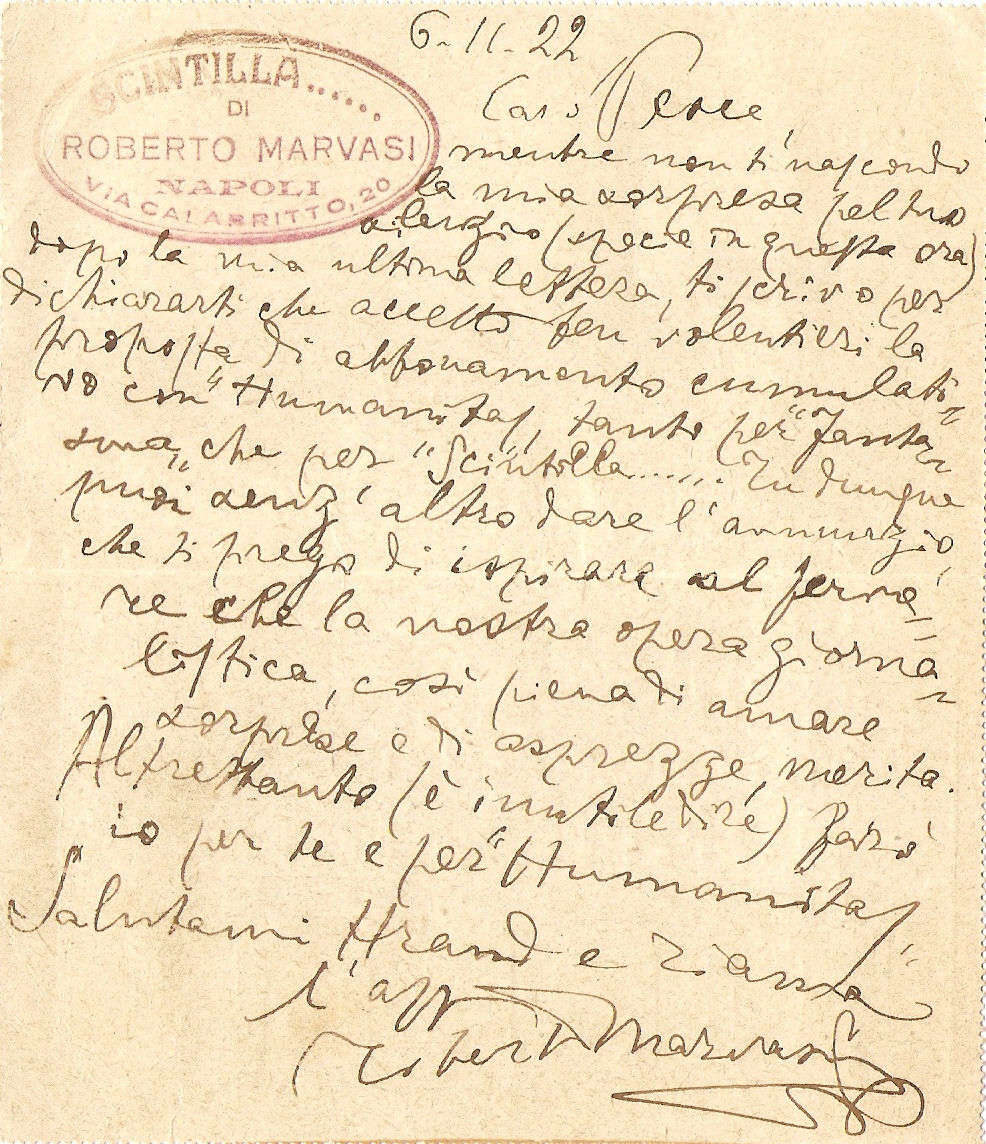 6-11-22
SCINTILLA......
DI
ROBERTO MARVASI
NAPOLI
VIA CALABRITTO, 20
Caro Pesce,
mentre non ti nascondo
la mia sorpresa pel tuo
silenzio (specie in questa ora)
dopo la mia ultima lettera, ti scrivo per
dichiararti che accetto ben volentieri la
proposta di abbonamento cumulati-
vo con "Humanitas", tanto per "Fanta-
sma", che per "Scintilla....... Tu dunque
puoi senz'altro dare l'annunzio,
che ti prego di ispirare al fervo-
re che la nostra opera giorna-
listica, così piena di amare
sorprese e di asprezze, merita.
Altrettanto (è inutile dire) farò
io per te e per "Humanitas".
Salutami Hrand e Ziama
l'aff
Roberto Marvasi